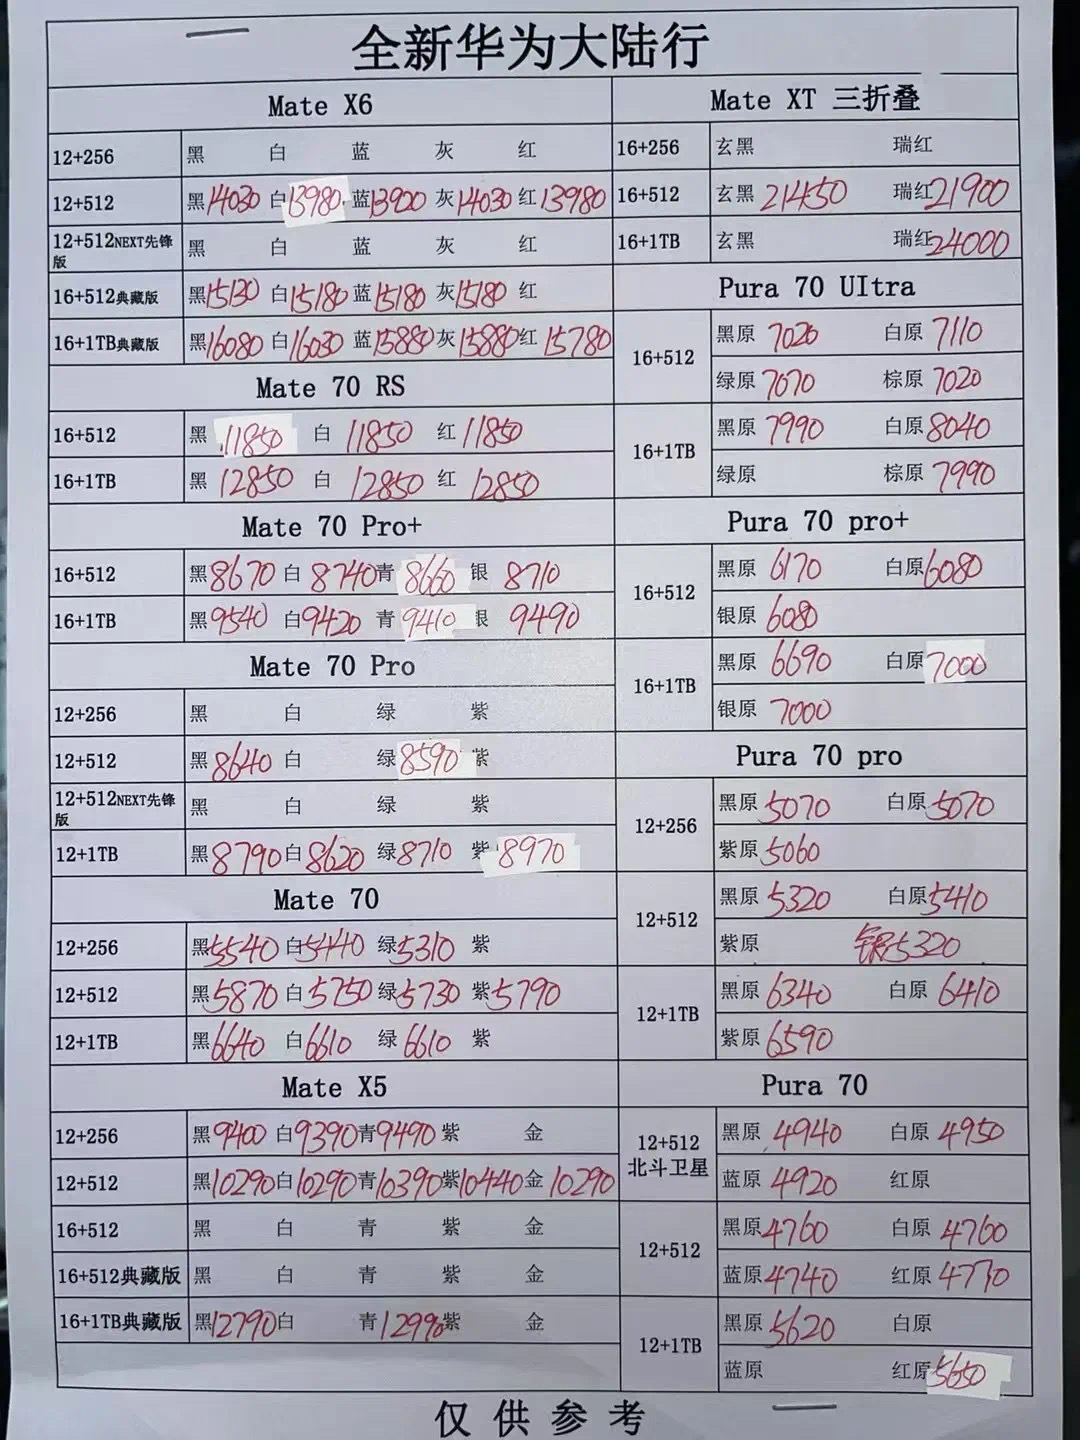 全新华为大陆行
Mate X6
12+256 黑 白 蓝 灰 红
12+512 黑14030 白13980 蓝13900 灰14030 红13980
12+512NEXT先锋版 黑 白 蓝 灰 红
16+512典藏版 黑15130 白15180 蓝15180 灰15180 红
16+1TB典藏版 黑16080 白16030 蓝15880 灰15880 红15780
Mate 70 RS
16+512 黑 11850 白 11850 红 11850
16+1TB 黑 12850 白 12850 红 12850
Mate 70 Pro+
16+512 黑8670 白 8740 青 8660 银 8710
16+1TB 黑9540 白9420 青 9410 银 9490
Mate 70 Pro
12+256 黑 白 绿 紫
12+512 黑8640 白 绿8590 紫
12+512NEXT先锋版 黑 白 绿 紫
12+1TB 黑8790 白8620 绿8710 紫8970
Mate 70
12+256 黑5540 白5440 绿5310 紫
12+512 黑5870 白5750 绿5730 紫5790
12+1TB 黑6640 白6610 绿6610 紫
Mate X5
12+256 黑9400 白9390 青9490 紫 金
12+512 黑10290 白10290 青10390 紫10440 金10290
16+512 黑 白 青 紫 金
16+512典藏版 黑 白 青 紫 金
16+1TB典藏版 黑12790 白 青12990 紫 金
Mate XT 三折叠
16+256 玄黑 瑞红
16+512 玄黑 21450 瑞红21900
16+1TB 玄黑 瑞红24000
Pura 70 UItra
16+512
黑原 7020 白原 7110
绿原 7070 棕原 7020
16+1TB
黑原 7990 白原8040
绿原 棕原 7990
Pura 70 pro+
16+512
黑原 6170 白原6080
银原 6080
16+1TB
黑原 6690 白原7000
银原 7000
Pura 70 pro
12+256
黑原 5070 白原5070
紫原 5060
12+512
黑原 5320 白原5410
紫原 银5320
12+1TB
黑原 6340 白原 6410
紫原 6590
Pura 70
12+512
北斗卫星
黑原 4940 白原 4950
蓝原 4920 红原
12+512
黑原4760 白原 4760
蓝原4740 红原 4770
12+1TB
黑原 5620 白原
蓝原 红原5650
仅供参考